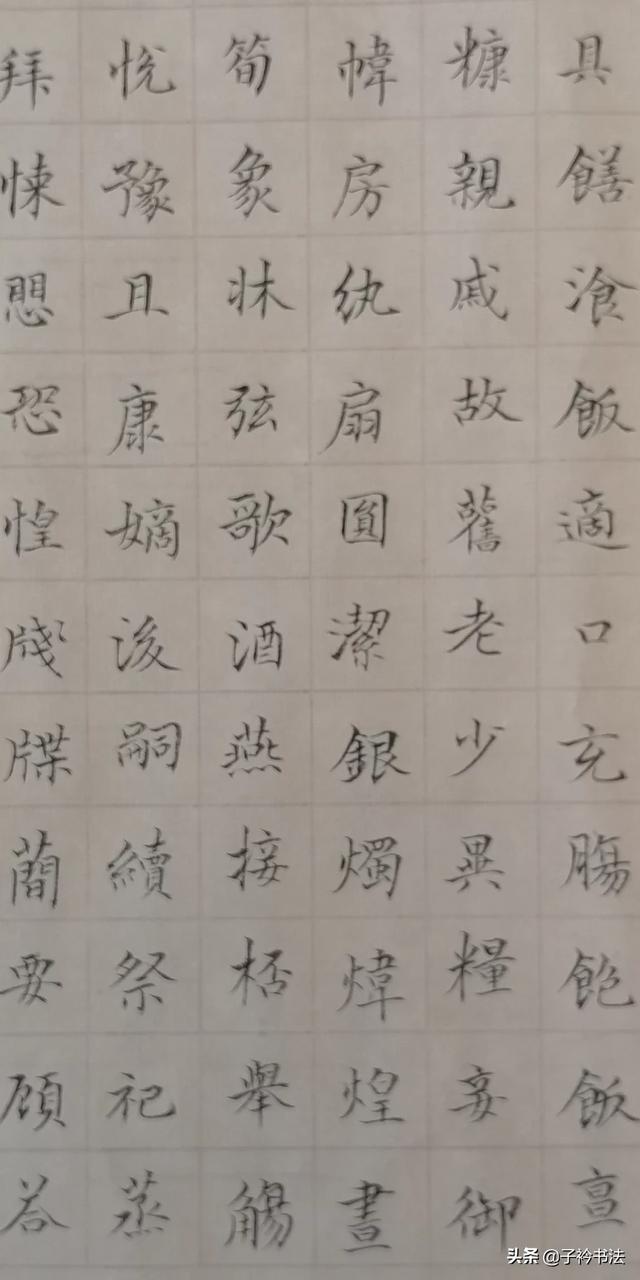 具饍湌飯適口充腸飽飫亶
糠親戚故舊老少異糧妾御
幃房紈扇圓潔銀燭煒煌晝
筍象牀弦歌酒燕接桮舉觴
悅豫且康嫡後嗣續祭祀蒸
拜悚愳恐惶牋牒簡要顧答
头条 @子衿书法